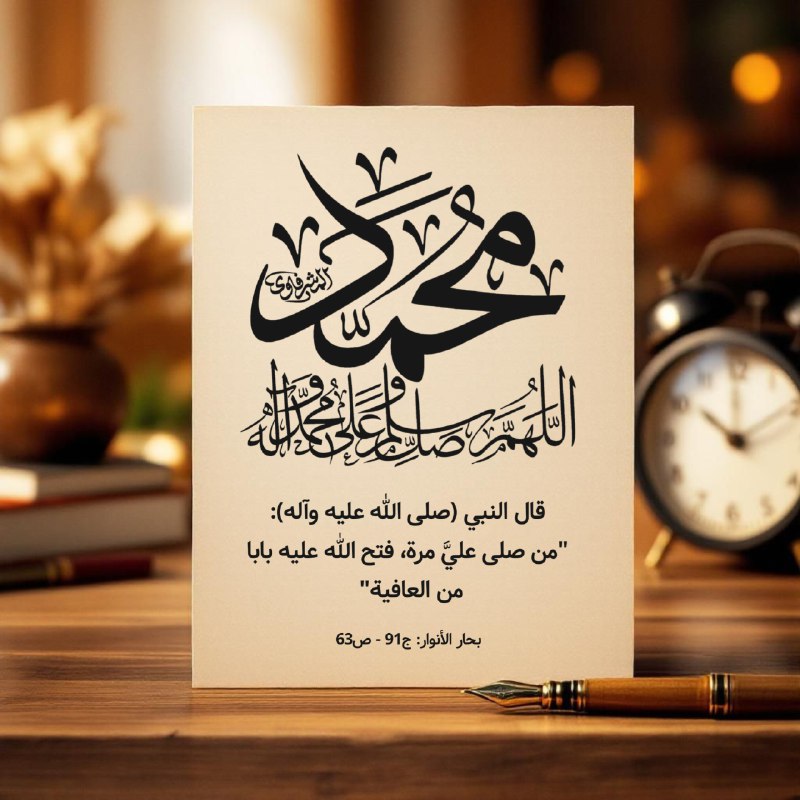 محمد
المشرفاوي
اللهم صل وسلم على محمد وآله
قال النبي (صلى الله عليه وآله):
"من صلى عليَّ مرة، فتح الله عليه بابا
من العافية"
بحار الأنوار: ج91 - ص63
12